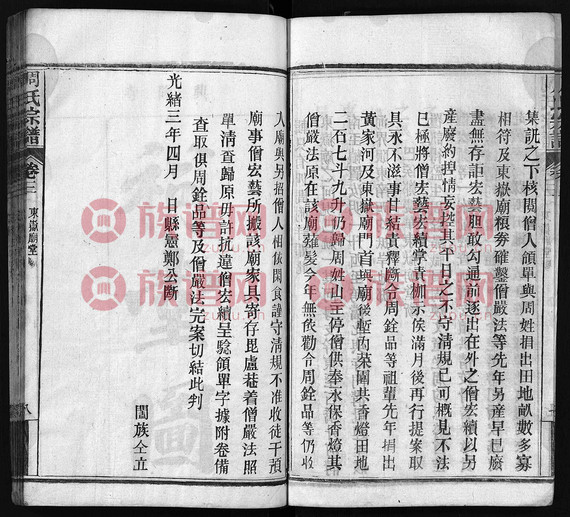 集訊之下核閱僧人領單與周姓捐出田地畝數多寡
相符及東嶽廟糧券確鑿僧嚴法等先年另產早已廢
盡無存詎宏藝胆敢勾通前逐出在外之僧宏續以另
產廢約捏情妄揑其平日之不守清規已可概見不法
已極將僧宏藝宏續掌責枷示俟滿月後再行提案取
具永不滋事甘結責釋斷令周銓品等祖輩先年捐出
黃家河及東嶽廟門首與廟後塹內菜園共香燈田地
二石七斗九升仍歸周姓山主停僧供奉永保香燈其
僧嚴法原在該廟薙髮今年無依勸令周銓品等仍收
入廟與另招僧人相依閑食謹守清規不准收徒干預
廟事僧宏藝所搬該廟家具寄存毘盧菴着僧嚴法照
單清查歸原毋許抗違僧宏續呈驗領單字據附卷備
查取俱周銓品等及僧嚴法完案切結此判
光緒三年四月 日縣憲鄭公斷
闔族仝立
周氏宗譜
卷三
東嶽廟堂
八
族谱网
族谱网
族谱网
族谱网